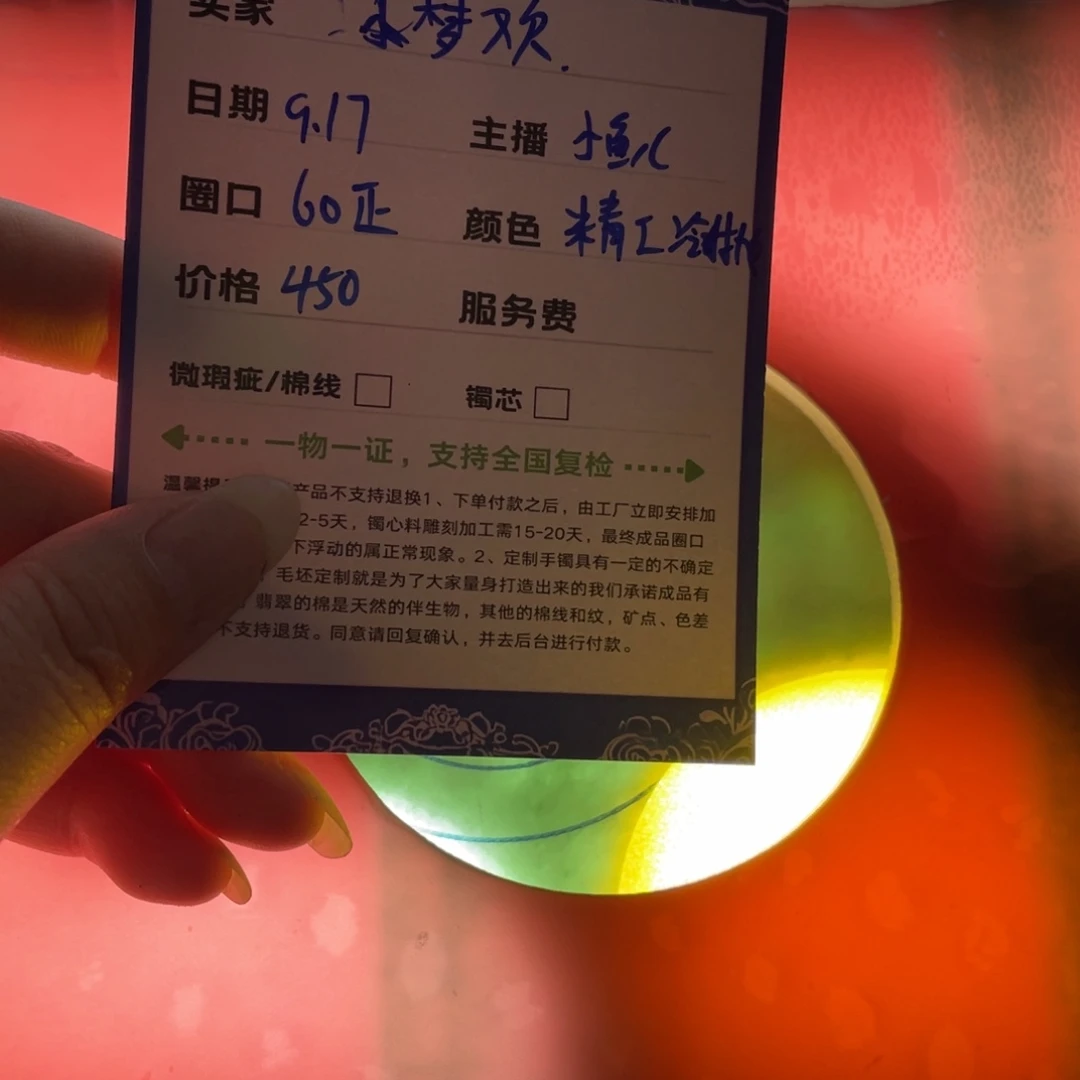 卖家 梦欢.
日期 9.17 主播 小鱼儿
圈口 60正 颜色 精工冷
价格 450 服务费
微瑕疵/棉线 镯芯
一物一证，支持全国复检
温馨提 产品不支持退换1、下单付款之后，由工厂立即安排加
2-5天，镯心料雕刻加工需15-20天，最终成品圈口
下浮动的属正常现象。2、定制手镯具有一定的不确定
毛坯定制就是为了大家量身打造出来的我们承诺成品有
翡翠的棉是天然的伴生物，其他的棉线和纹，矿点、色差
不支持退货。同意请回复确认，并去后台进行付款。